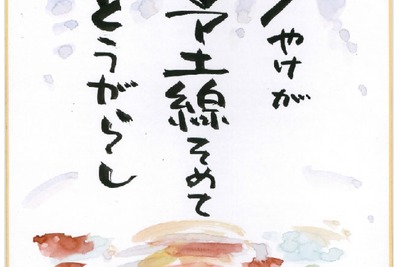 やけが
線そめて
とうがらし